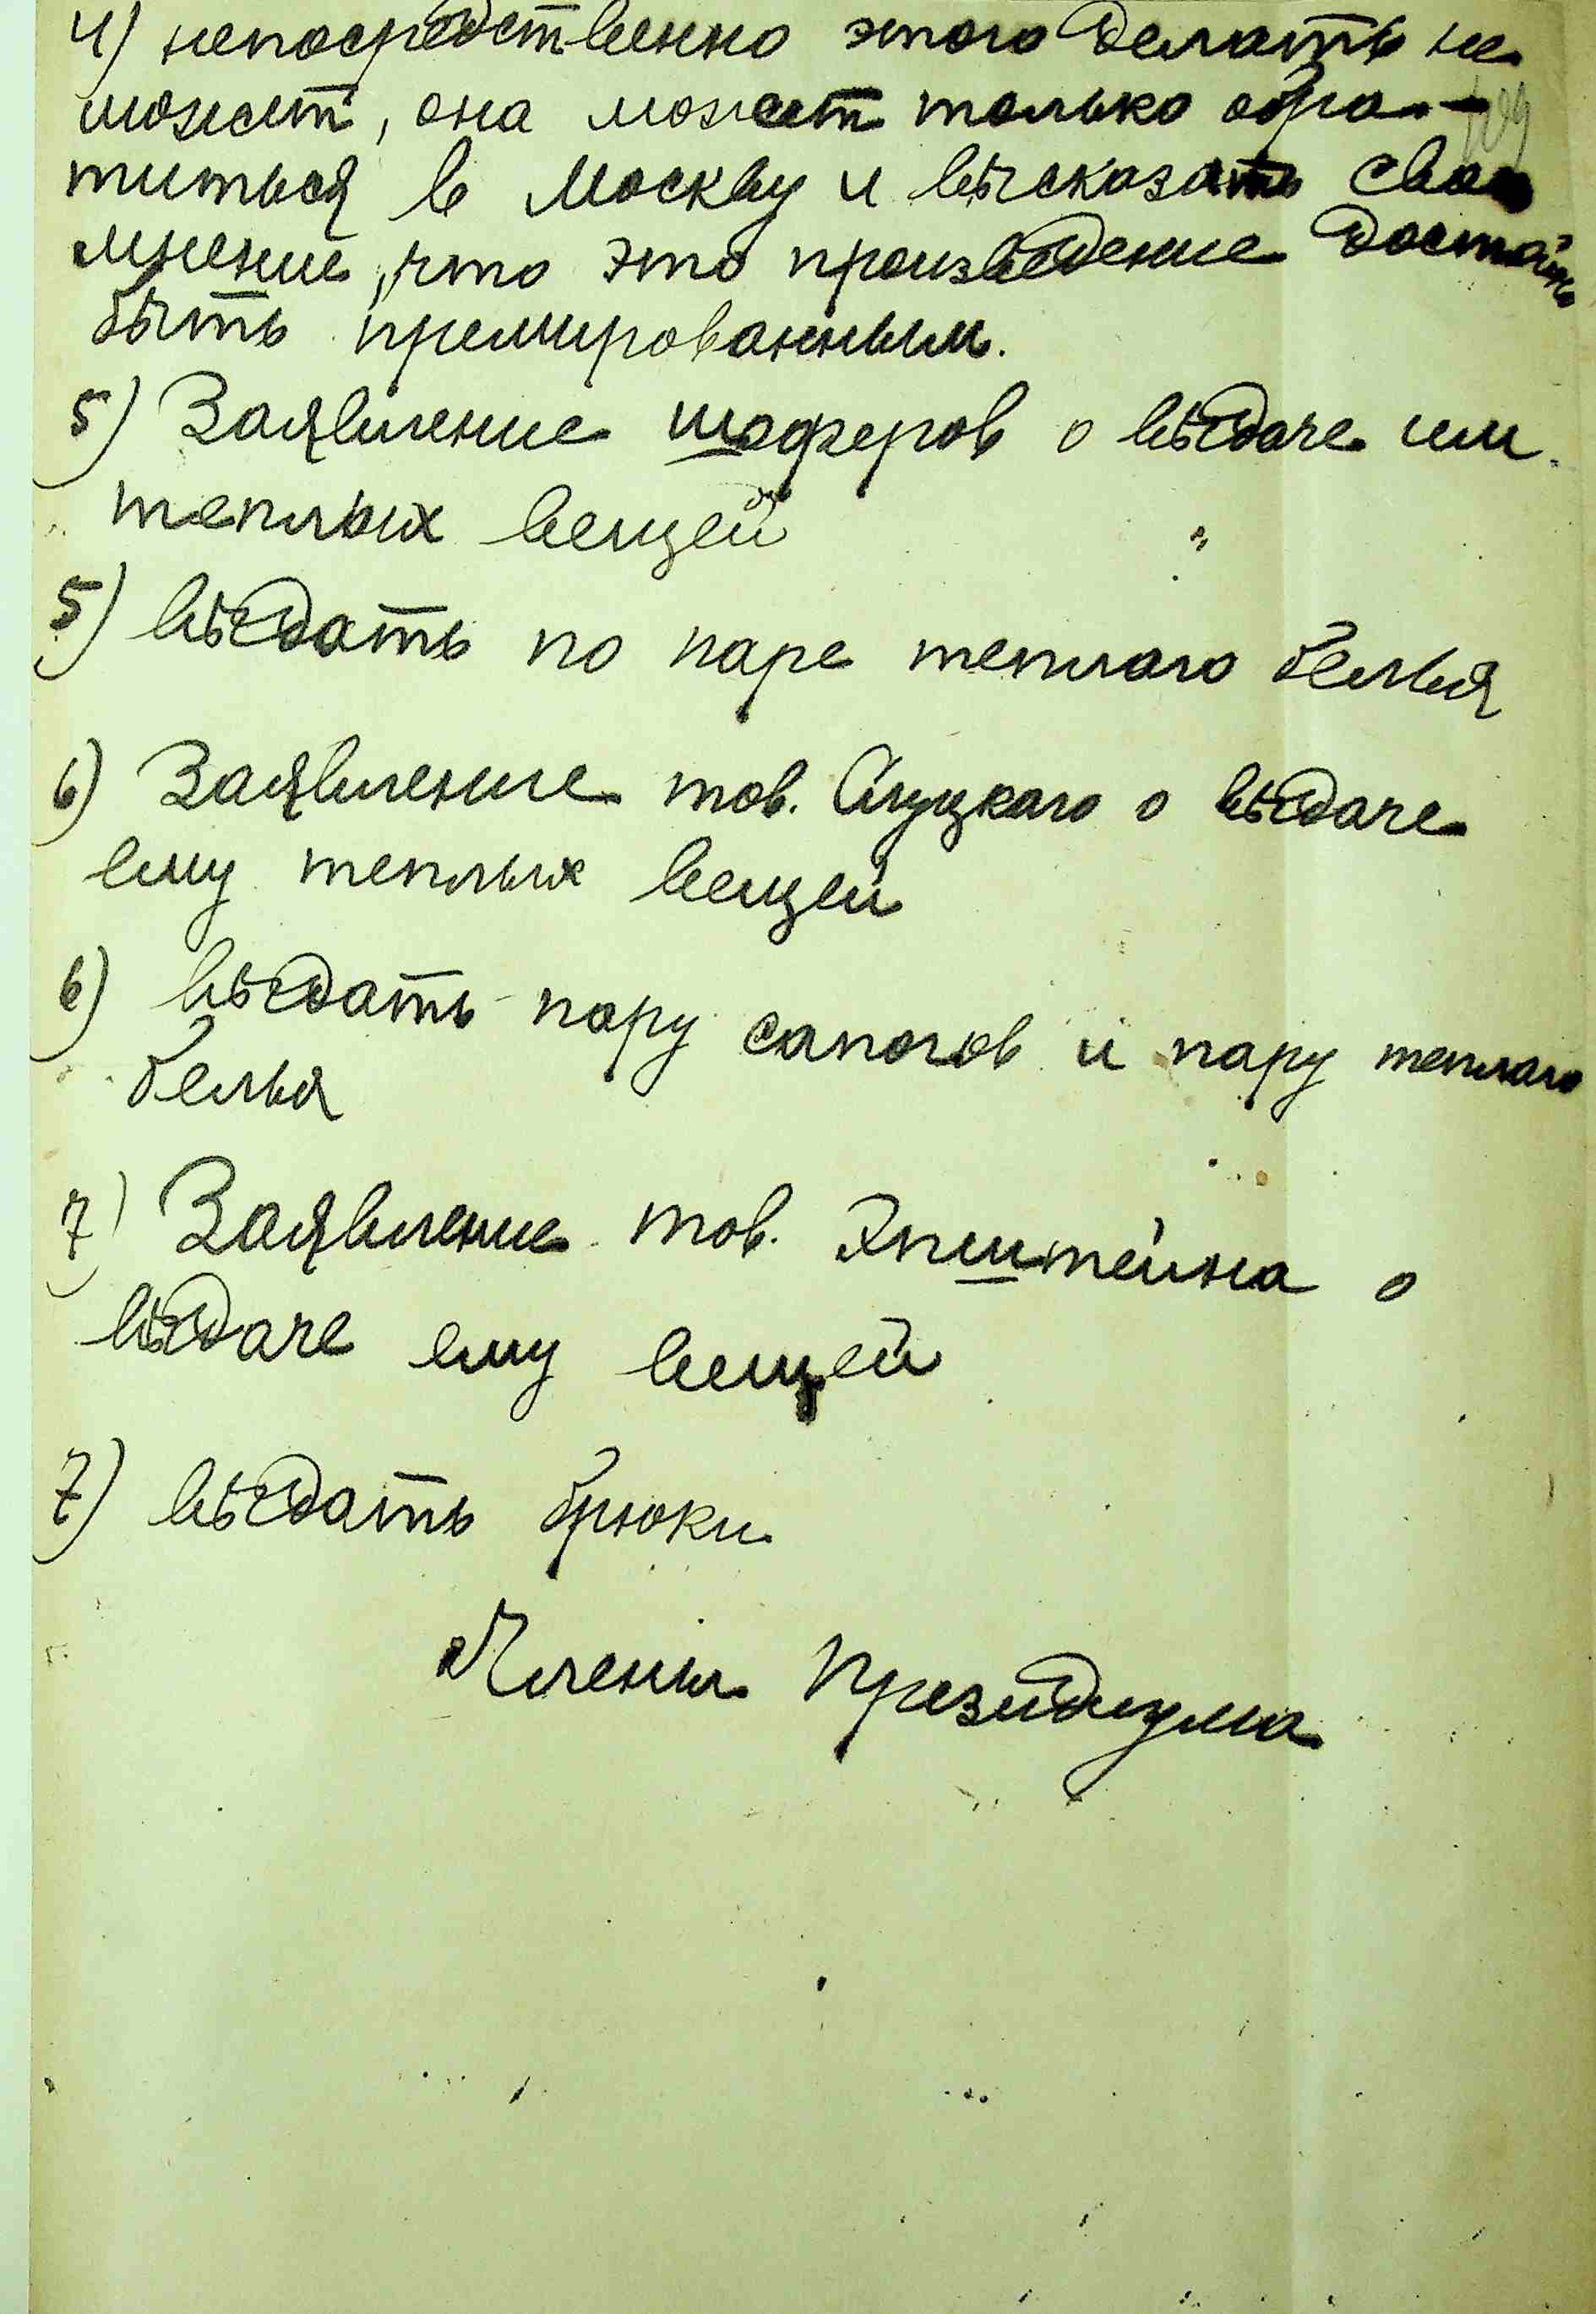 4) непосредственно этого делать не
может, она может только обра-
титься в Москву и высказать свое
мнение, что это произведение достойно
быть премированным.
5) Заявление шоферов о выдаче им
теплых вещей
5) выдать по паре теплого белья
6) Заявление тов. Слуцкого о выдаче
ему теплых вещей
6) выдать пару сапогов и пару теплого
белья
7) Заявление тов. Эпштейна о
выдаче ему вещей
7) выдать брюки
Члены Президиума